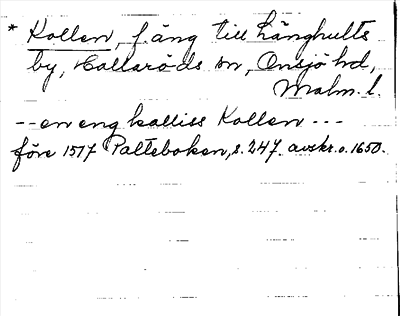 * Kollen, f. äng till Långhults
by, Hallaröds sn, Onsjö hd,
Malm. l.
-- en eng kalliss Kollen ---
före 1517 Palteboken, s. 247. avskr. o. 1650.